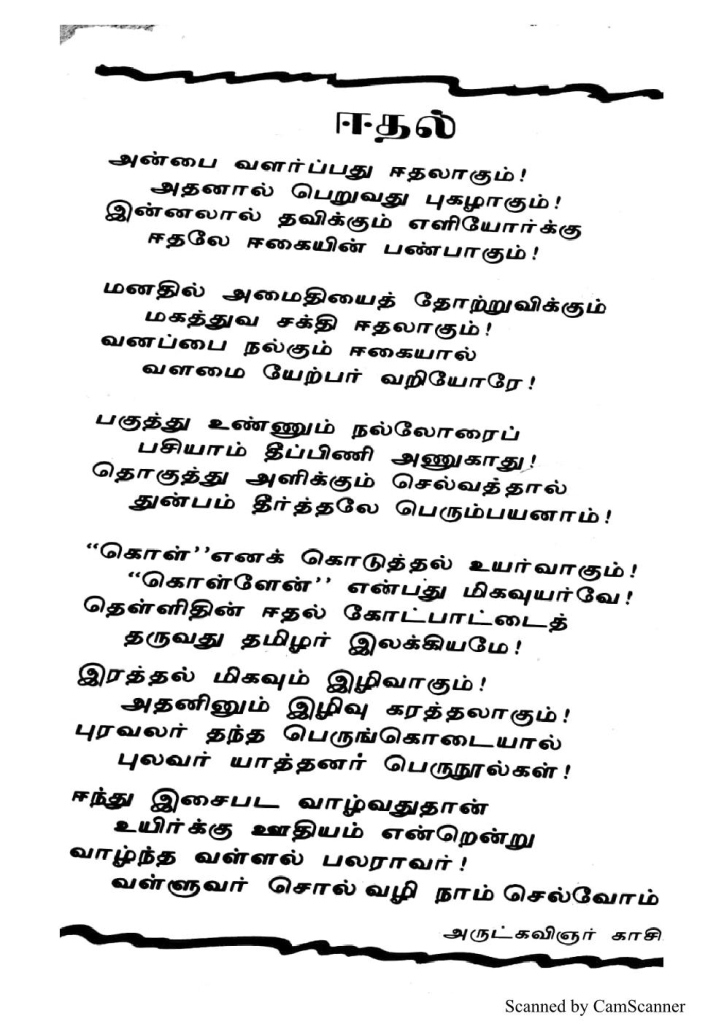 ஈதல்
அன்பை வளர்ப்பது ஈதலாகும்!
அதனால் பெறுவது புகழாகும்!
இன்னலால் தவிக்கும் எளியோர்க்கு
ஈதலே ஈகையின் பண்பாகும்!
மனதில் அமைதியைத் தோற்றுவிக்கும்
மகத்துவ சக்தி ஈதலாகும்!
வனப்பை நல்கும் ஈகையால்
வளமை யேற்பர் வறியோரே!
பகுத்து உண்ணும் நல்லோரைப்
பசியாம் தீப்பிணி அணுகாது!
தொகுத்து அளிக்கும் செல்வத்தால்
துன்பம் தீர்த்தலே பெரும்பயனாம்!
“கொள்”எனக் கொடுத்தல் உயர்வாகும்!
“கொள்ளேன்” என்பது மிகவுயர்வே!
தெள்ளிதின் ஈதல் கோட்பாட்டைத்
தருவது தமிழர் இலக்கியமே!
இரத்தல் மிகவும் இழிவாகும்!
அதனினும் இழிவு கரத்தலாகும்!
புரவலர் தந்த பெருங்கொடையால்
புலவர் யாத்தனர் பெருநூல்கள்!
ஈந்து இசைபட வாழ்வதுதான்
உயிர்க்கு ஊதியம் என்றென்று
வாழ்ந்த வள்ளல் பலராவர்!
வள்ளுவர் சொல் வழி நாம் செல்வோம்
அருட்கவிஞர் காசி
Scanned by CamScanner